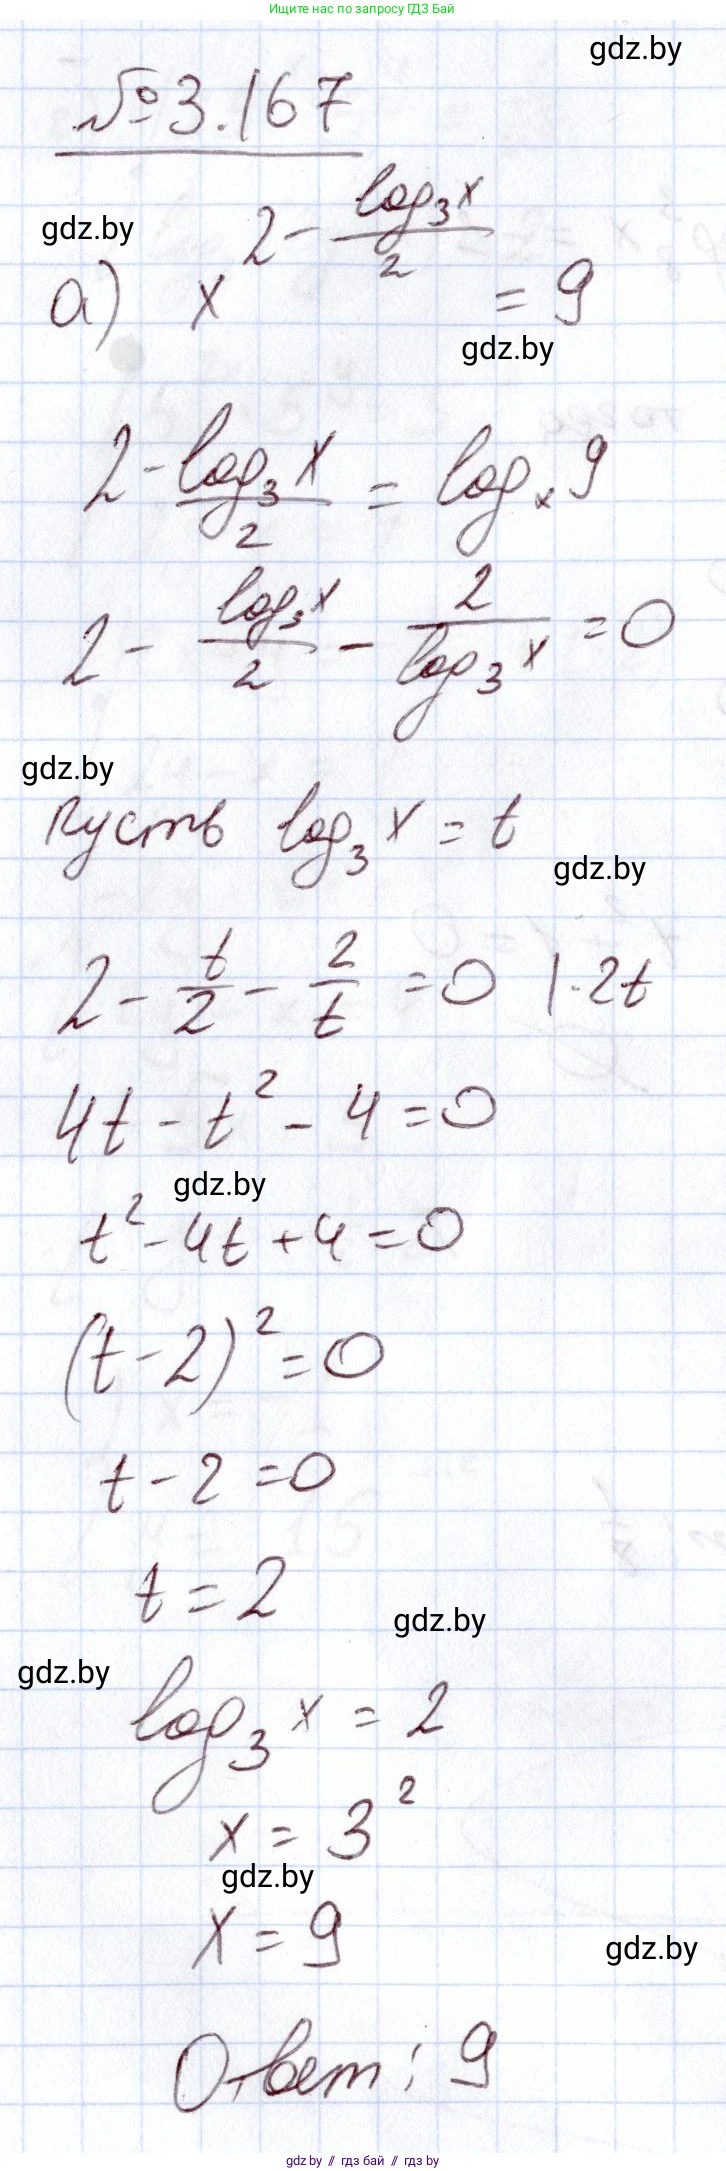 Ищите нас по запросу ГДЗ Бай
gdz.by
№3.167
gdz.by
а) x^(2 - log₃x/2) = 9
gdz.by
2 - log₃x/2 = logₓ9
2 - log₃x/2 - 2/log₃x = 0
gdz.by
пусть log₃x = t
gdz.by
2 - t/2 - 2/t = 0 |·2t
4t - t² - 4 = 0
gdz.by
t² - 4t + 4 = 0
(t - 2)² = 0
t - 2 = 0
t = 2
gdz.by
gdz.by
log₃x = 2
x = 3²
gdz.by
x = 9
gdz.by
Ответ: 9
gdz.by // гдз бай // гдз by